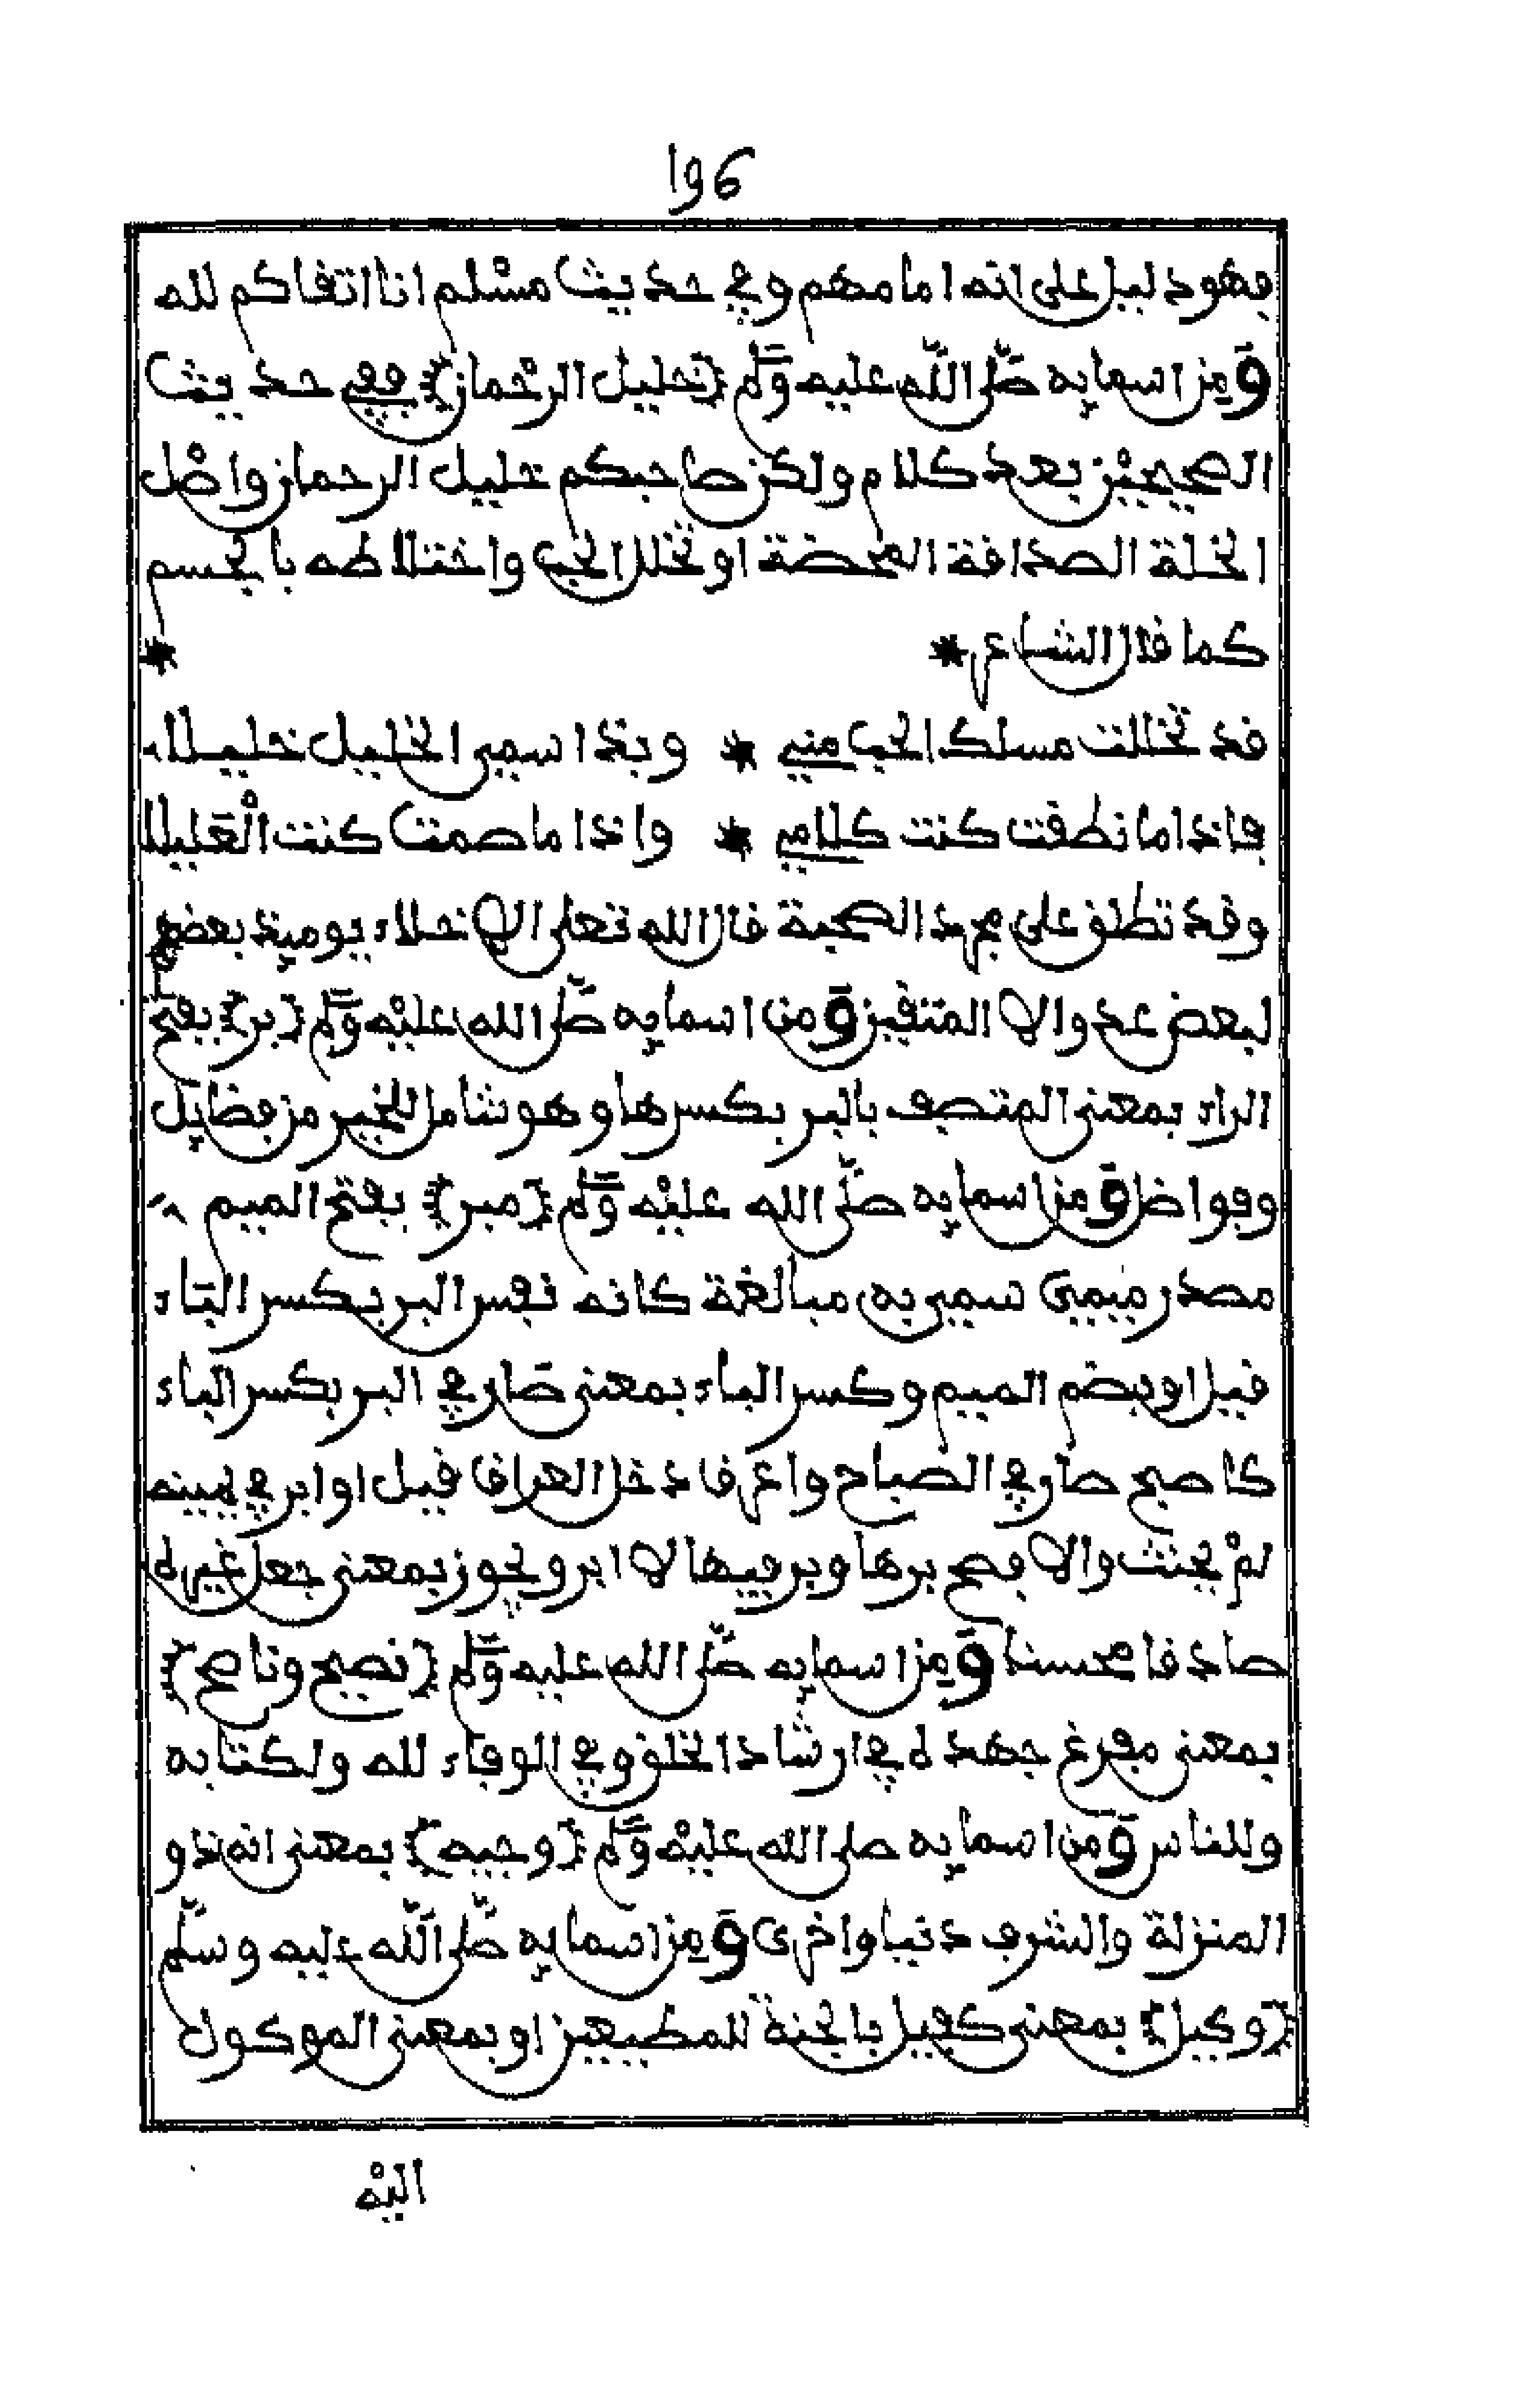 196
فهو دليل على انه امامهم وفي حديث مسلم انا اتقاكم لله
ومن اسمايه صلى الله عليه وسلم {خليل الرحمان} ففي حديث
الصحيحين بعد كلام ولكن صاحبكم خليل الرحمان واصل
الخلة الصداقة المحضة او تخلل الحب واختلاطه بالجسم
كما قال الشاعر * *
قد تخللت مسلك الحب مني * وبذا سمي الخليل خليلا
فاذا ما نطقت كنت كلامي * واذا ما صمت كنت الغليلا
وقد تطلق على مجرد الصحبة قال الله تعلى الاخلاء يوميذ بعضهم
لبعض عدو الا المتقين ومن اسمايه صلى الله عليه وسلم {بر} بفتح
الراء بمعنى المتصف بالبر بكسرها وهو شامل للخير من فضايل
وفواضل ومن اسمايه صلى الله عليه وسلم {مبر} بفتح الميم
مصدر ميمي سمي به مبالغة كانه نفس البر بكسر الباء
قيل او بضم الميم وكسر الباء بمعنى صار في البر بكسر الباء
كاصبح صار في الصباح واعرق دخل العراق قيل او ابر في يمينه
لم يحنث والافصح برها وبر فيها لا ابر ويجوز بمعنى جعل غيره
صادقا محسنا ومن اسمايه صلى الله عليه وسلم {نصيح وناصح}
بمعنى مفرغ جهده في ارشاد الخلق وفي الوفاء لله ولكتابه
وللناس ومن اسمايه صلى الله عليه وسلم {وجيه} بمعنى انه ذو
المنزلة والشرف دنيا واخرى ومن اسمايه صلى الله عليه وسلم
{وكيل} بمعنى كفيل بالجنة للمطيعين او بمعنى الموكول
اليه